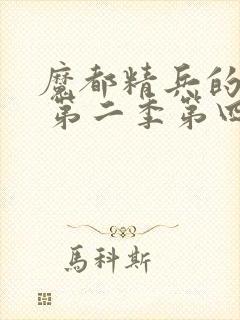 魔都精兵的
第二季第四
馬科斯